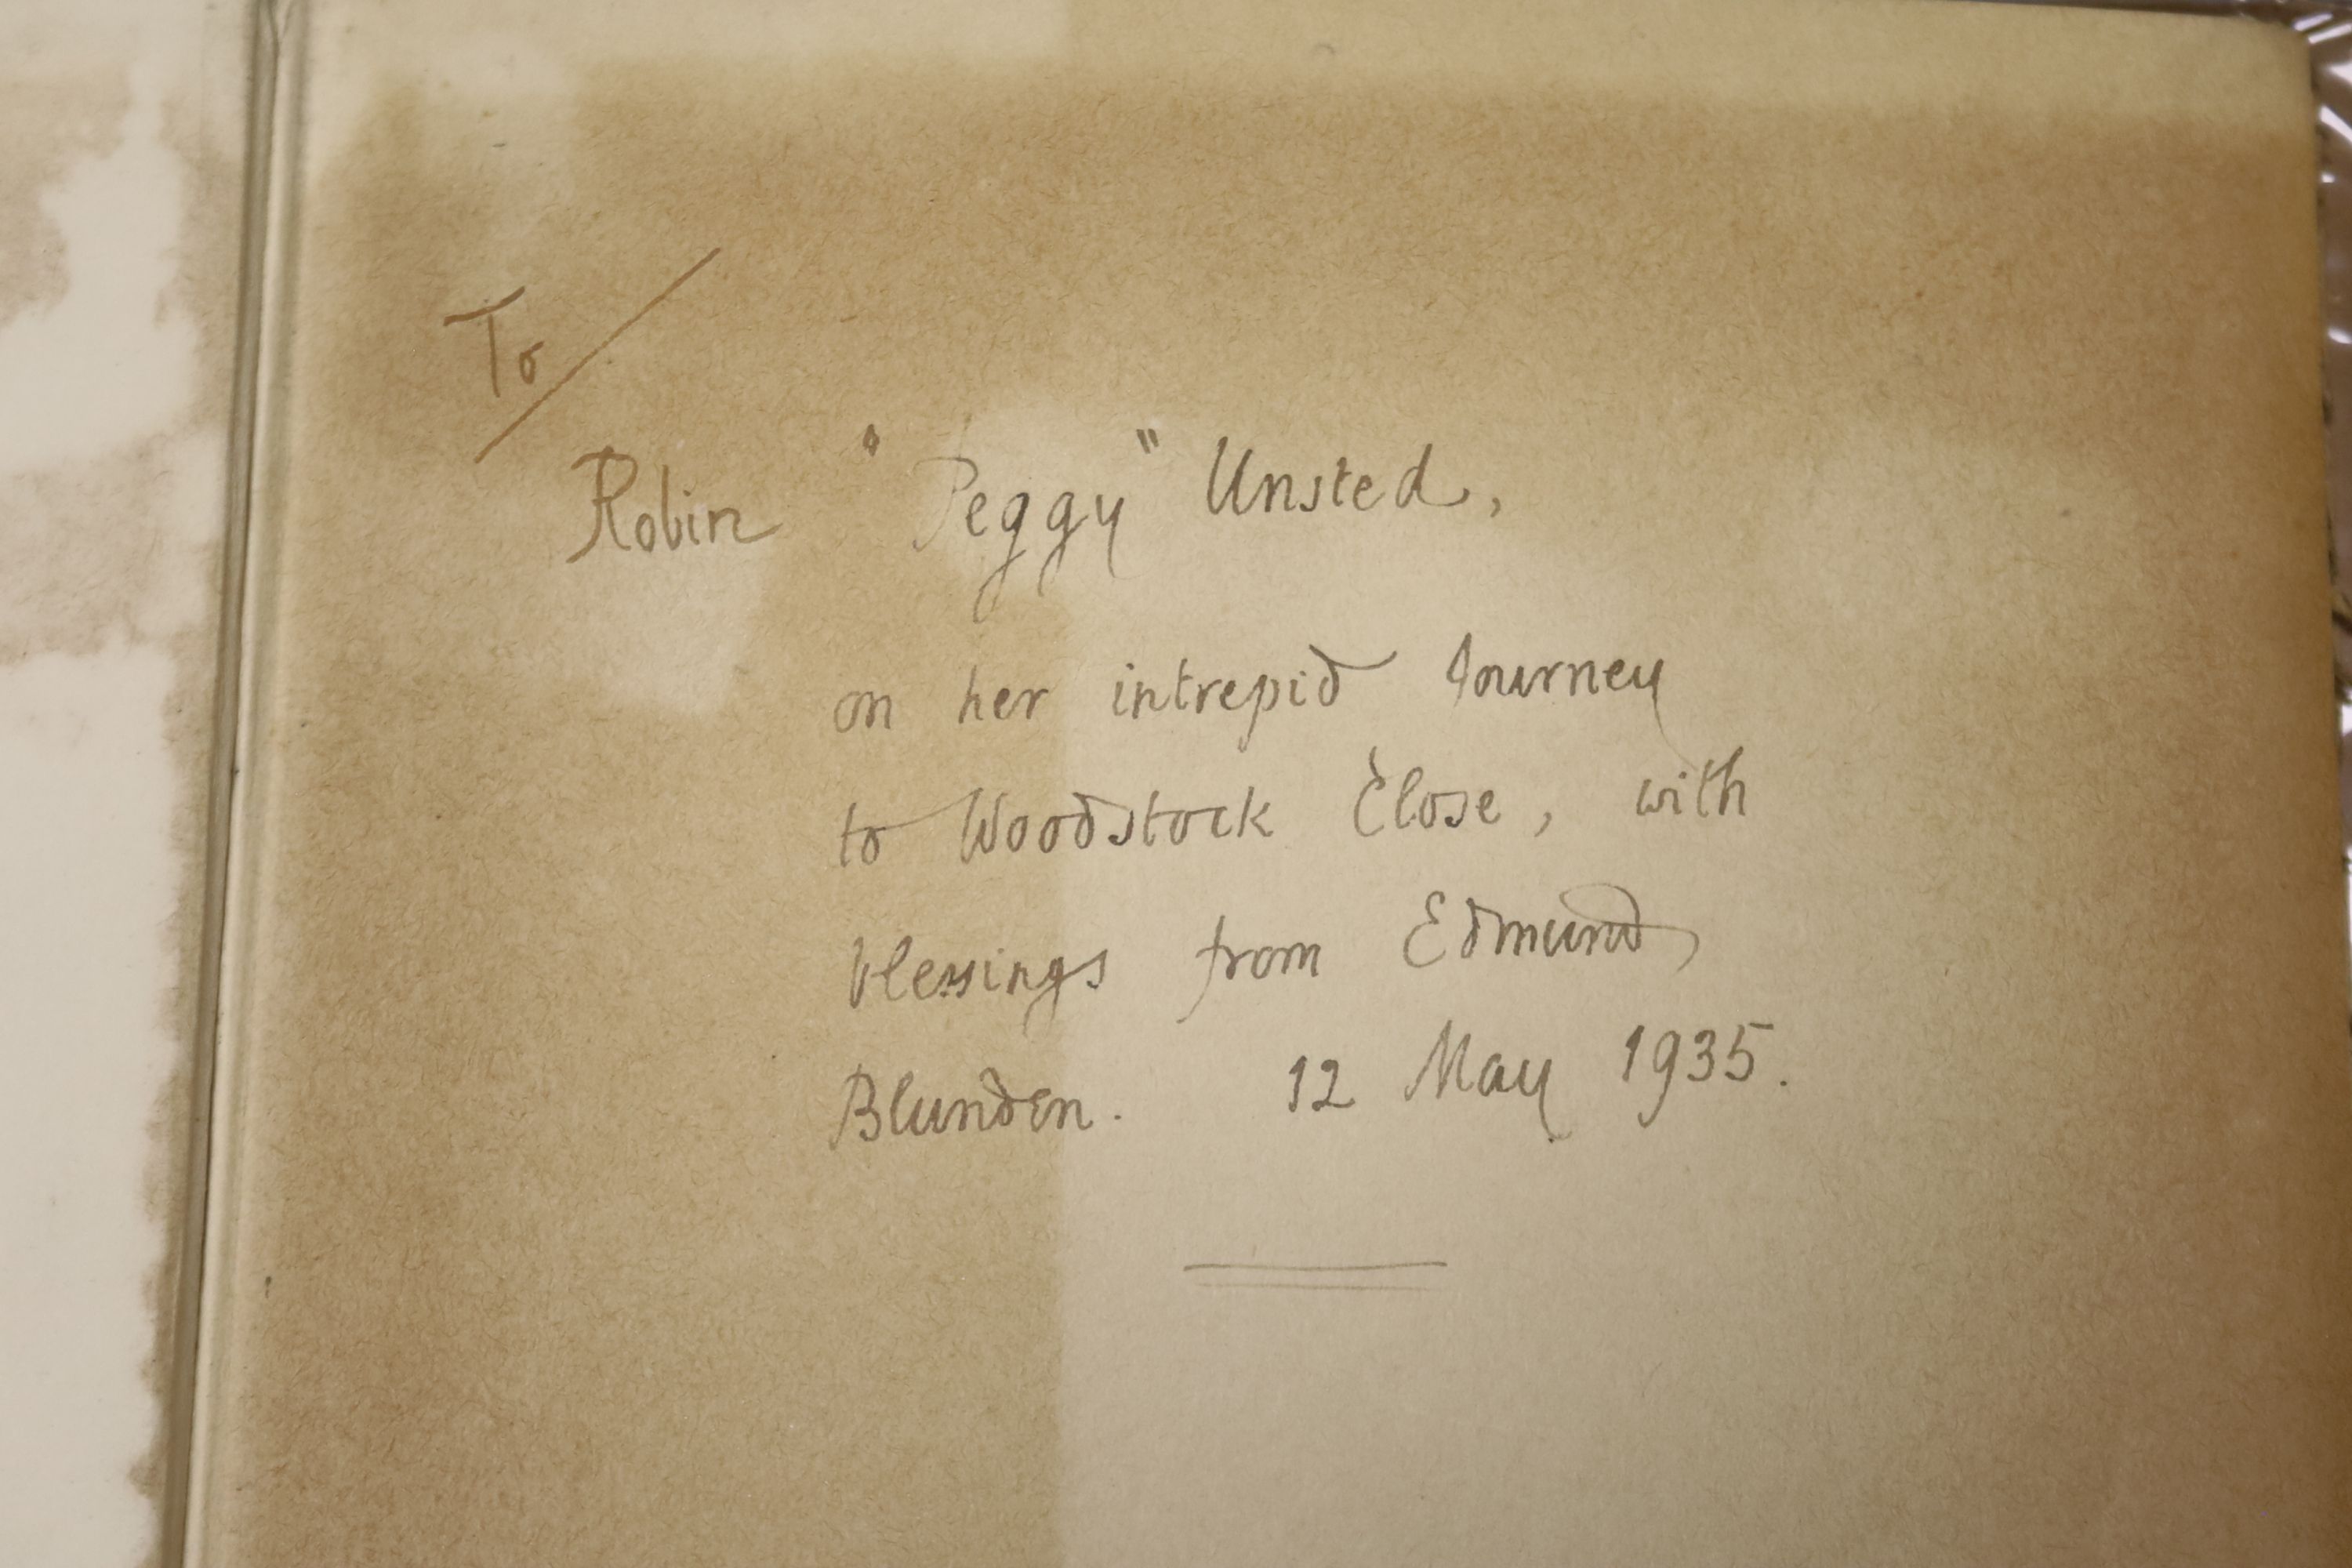 To/
Robin "Peggy" Unsted,
on her intrepid Journey
to Woodstock Close, with
blessings from Edmund
Blunden. 12 May 1935.